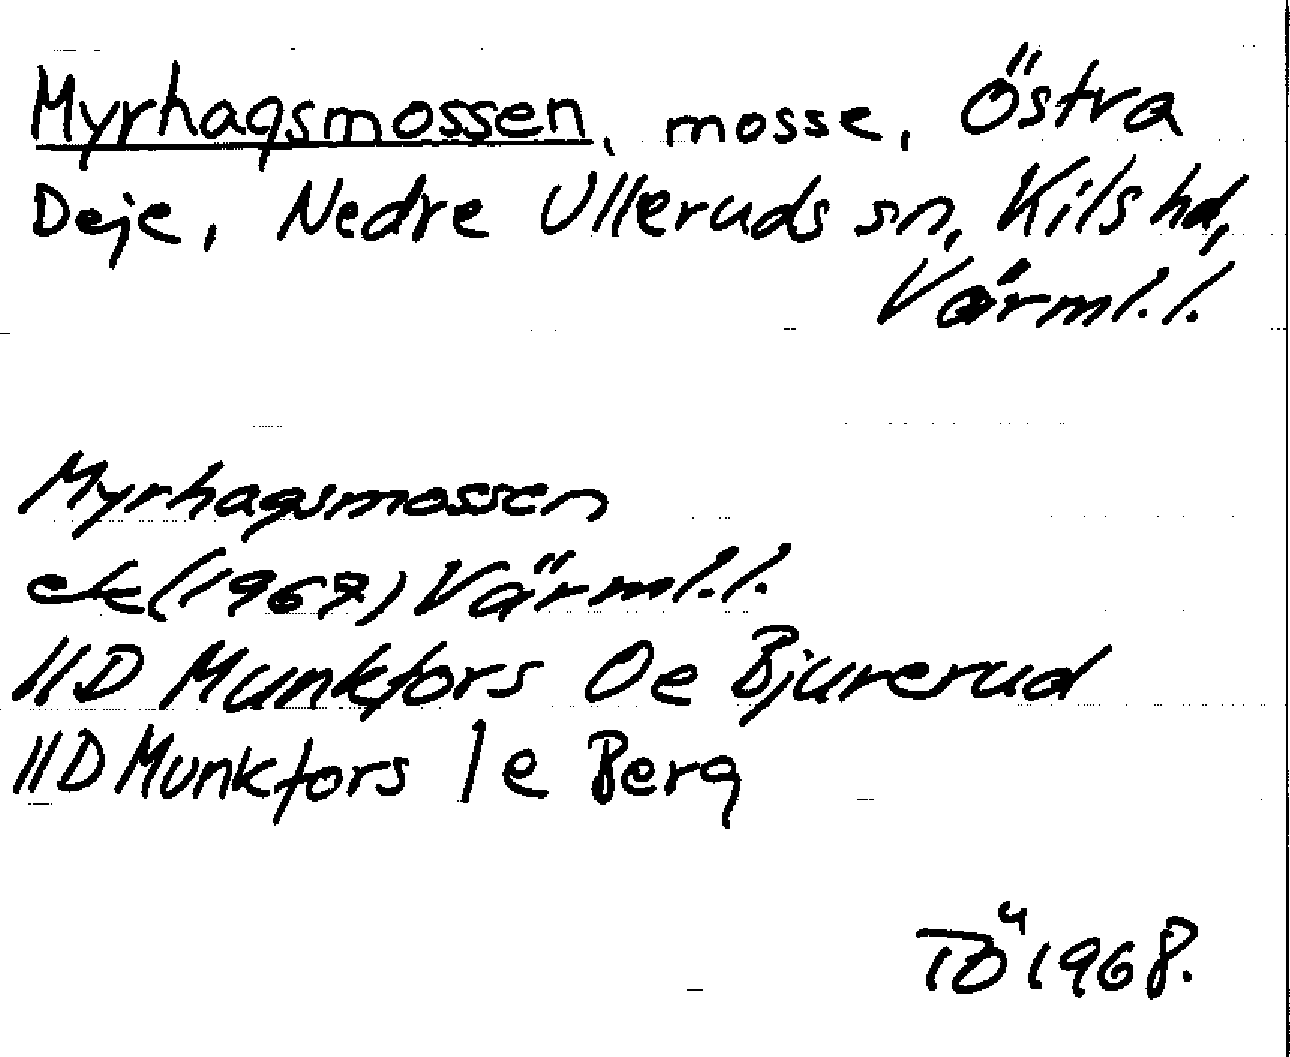 Myrhagsmossen, mosse, Östra
Deje, Nedre Ulleruds sn, Kils hd,
Värml.l.
Myrhagsmossen
ek (1967) Värml.l.
11D Munkfors 0e Bjurerud
11D Munkfors 1e Berg
TÖ 1968.